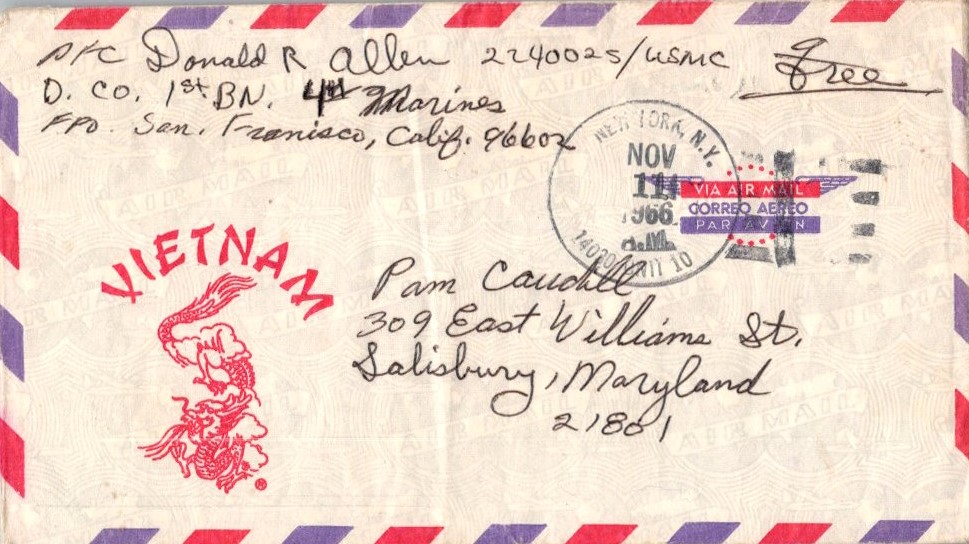 PFC Donald R Allen 2240025/USMC
Free
D. Co. 1st BN. 4th Marines
FPO. San. Franisco, Calif. 96602
NEW YORK, N.Y.
NOV
11
1966
VIA AIR MAIL
CORREO AEREO
PAR AVION
VIETNAM
Pam Caudell
309 East Williams St.
Salisbury, Maryland
21801
®